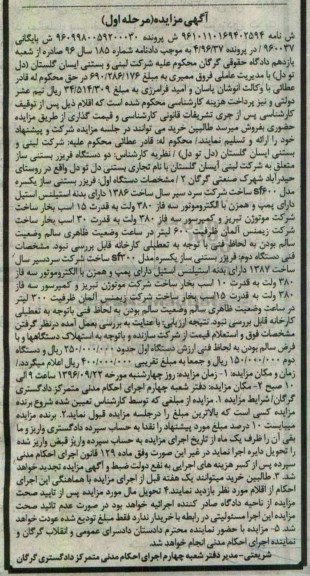 آگهی مزایده(مرحله اول)
ش نامه ۹۶۱۰۱۱۰۱۶۹۴۰۲۵۹۴ در پرونده ۹۶۰۹۹۸۰۰۵۹۲۰۰۰۳۰ ش بایگانی
۹۶۰۰۳۷ / در پرونده ۴/۹۶/۳۷ به موجب دادنامه شماره ۱۸۵ سال ۹۶ صادره از شعبه
یازدهم دادگاه حقوقی گرگان محکوم علیه شرکت لبنی و بستنی ایسان گلستان (دل
تو دل) با مدیریت عاملی فروق ممبری به مبلغ ۶۹/۰۲۸۶/۱۷۶ در حق محکوم له قادر
عطائی با وکالت انوشان پاسان و امید فرامرزی به مبلغ ۳۴/۵۱۴/۳۰۹ ریال نیم عشر
دولتی و نیز پرداخت هزینه کارشناسی محکوم شده است؛که اقلام ذیل پس از توقیف
کارشناسی پس از جری تشریفات قانونی کارشناسی و قیمت گذاری از طریق مزایده
حضوری بفروش میرسد طالبین خرید می توانند در جلسه مزایده شرکت و پیشنهاد
خود را ارائه و تسلیم نمایند/ محکوم له: قادر عطائی محکوم علیه: شرکت لبنی و
بستنی ایسان گلستان (دل تو دل) / نظریه کارشناس: دو دستگاه فریزر بستنی ساز
متعلق به شرکت لبنی ایسان گلستان با نام تجاری بستنی دل تو دل واقع در روستای
حیدرآباد شهرک صنعتی گرگان ۲ / مشخصات دستگاه اول: فریزر بستنی ساز یکسره
مدل sf۶۰۰ ساخت شرکت سرد سیر سال ساخت ۱۳۸۶ دارای بدنه استیلنس استیل
دارای پمپ و همزن با الکتروموتور سه فاز ۳۸۰ ولت به قدرت ۱۵ اسب بخار ساخت
شرکت موتوژن تبریز و کمپرسور سه فاز ۳۸۰ ولت به قدرت ۳۰ اسب بخار ساخت
شرکت زیمنس المان ظرفیت ۶۰۰ لیتر در ساعت وضعیت ظاهری سالم وضعیت
سالم بودن به لحاظ فنی با توجه به تعطیلی کارخانه قابل بررسی نبود. مشخصات
فنی دستگاه دوم: فریزر بستنی ساز یکسره مدل sf۳۰۰ ساخت شرکت سردسیر سال
ساخت ۱۳۸۷ دارای بدنه استیلنس استیل دارای پمپ و همزن با الکتروموتور سه فاز
۳۸۰ ولت به قدرت ۱۰ اسب بخار ساخت شرکت موتوژن تبریز و کمپرسور سه فاز
۳۸۰ ولت به قدرت ۱۵ اسب بخار ساخت شرکت زیمنس المان ظرفیت ۳۰۰ لیتر
در ساعت وضعیت ظاهری سالم وضعیت سالم بودن به لحاظ فنی باتوجه به تعطیلی
کارخانه قابل بررسی نبود. نتیجه ارزیابی: با عنایت به بررسی بعمل آمده درنظر گرفتن
مشخصات فوق و استعلام قیمت از شرکت سازنده و باتوجه به استهلاک دستگاهها و با
فرض سالم بودن به لحاظ فنی ارزش دستگاه اول حدود ۲۵۰/۰۰۰/۰۰۰ ریال و دستگاه
دوم ۱۵۰/۰۰۰/۰۰۰ ریال و جمعا به مبلغ تقریبی ۴۰۰/۰۰۰/۰۰۰ ریال اعلام میگردد./
زمان و مکان مزایده: ۱- زمان مزایده: روز چهارشنبه مورخه ۱۳۹۶/۰۹/۲۲ ساعت ۹ الی
۱۰ صبح ۲- مکان مزایده: دفتر شعبه چهارم اجرای احکام مدنی متمرکز دادگستری
گرگان/ شرایط مزایده ۱. مزایده از مبلغی که توسط کارشناس تعیین شده شروع برنده
مزایده کسی است که بالاترین مبلغ را درجلسه مزایده قبول نماید.۲. برنده مزایده
میبایست ۱۰ درصد مبلغ مورد پیشنهاد را نقدا به حساب سپرده دادگستری واریز و ما
بقی آن را ظرف یک ماه از تاریخ اجرای مزایده به حساب سپرده واریز قبض واریز شده
را تحویل دایره اجرا نماید در غیر این صورت وفق ماده ۱۲۹ قانون اجرای احکام مدنی
سپرده پس از کسر هزینه های اجرایی به نفع دولت ضبط و آگهی مزایده تجدید خواهد
شد. ۳. طالبین خرید میتوانند یک هفته قبل از اجرای مزایده با هماهنگی این اجرای
احکام از اقلام مورد نظر بازدید نمایند.۴ تحویل مال مورد مزایده پس از تایید صحت
مزایده از ناحیه دادگاه صادر کننده اجرائیه خواهد بود در صورت عدم تائید صحت
مزایده این اجرا مسئولیتی در رابطه با خریدار ندارد فقط مبلغ تودیع شده عودت خواهد
شد. ۵- مزایده با حضور نماینده محترم دادستان دادسرای عمومی و انقلاب گرگان و
نماینده اجرای احکام مدنی انجام خواهد شد.
شریعتی- مدیر دفتر شعبه چهارم اجرای احکام مدنی متمرکز دادگستری گرگان